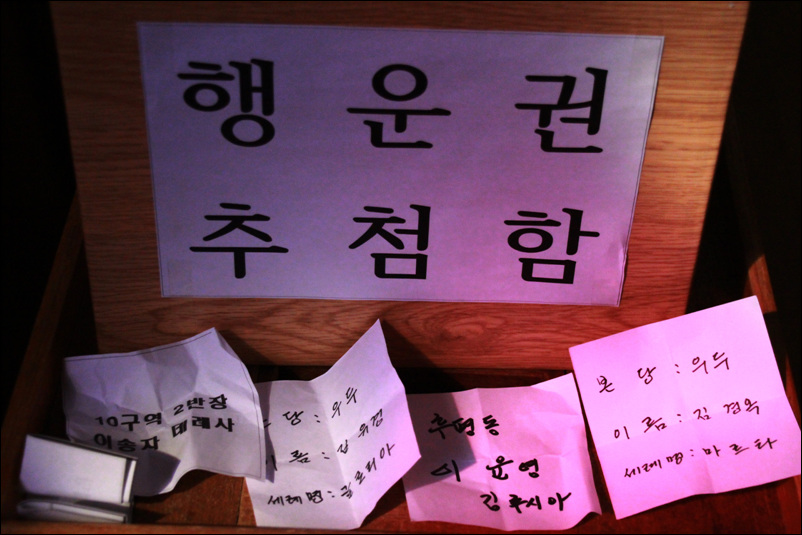 행운권
추첨함
10구역 2반장
이송자 테레사
본당 : 우두
이름 : 김유경
세례명 : 글로리아
후평동
이윤영
김루시아
본당 : 우두
이름 : 김경옥
세례명 : 마르타